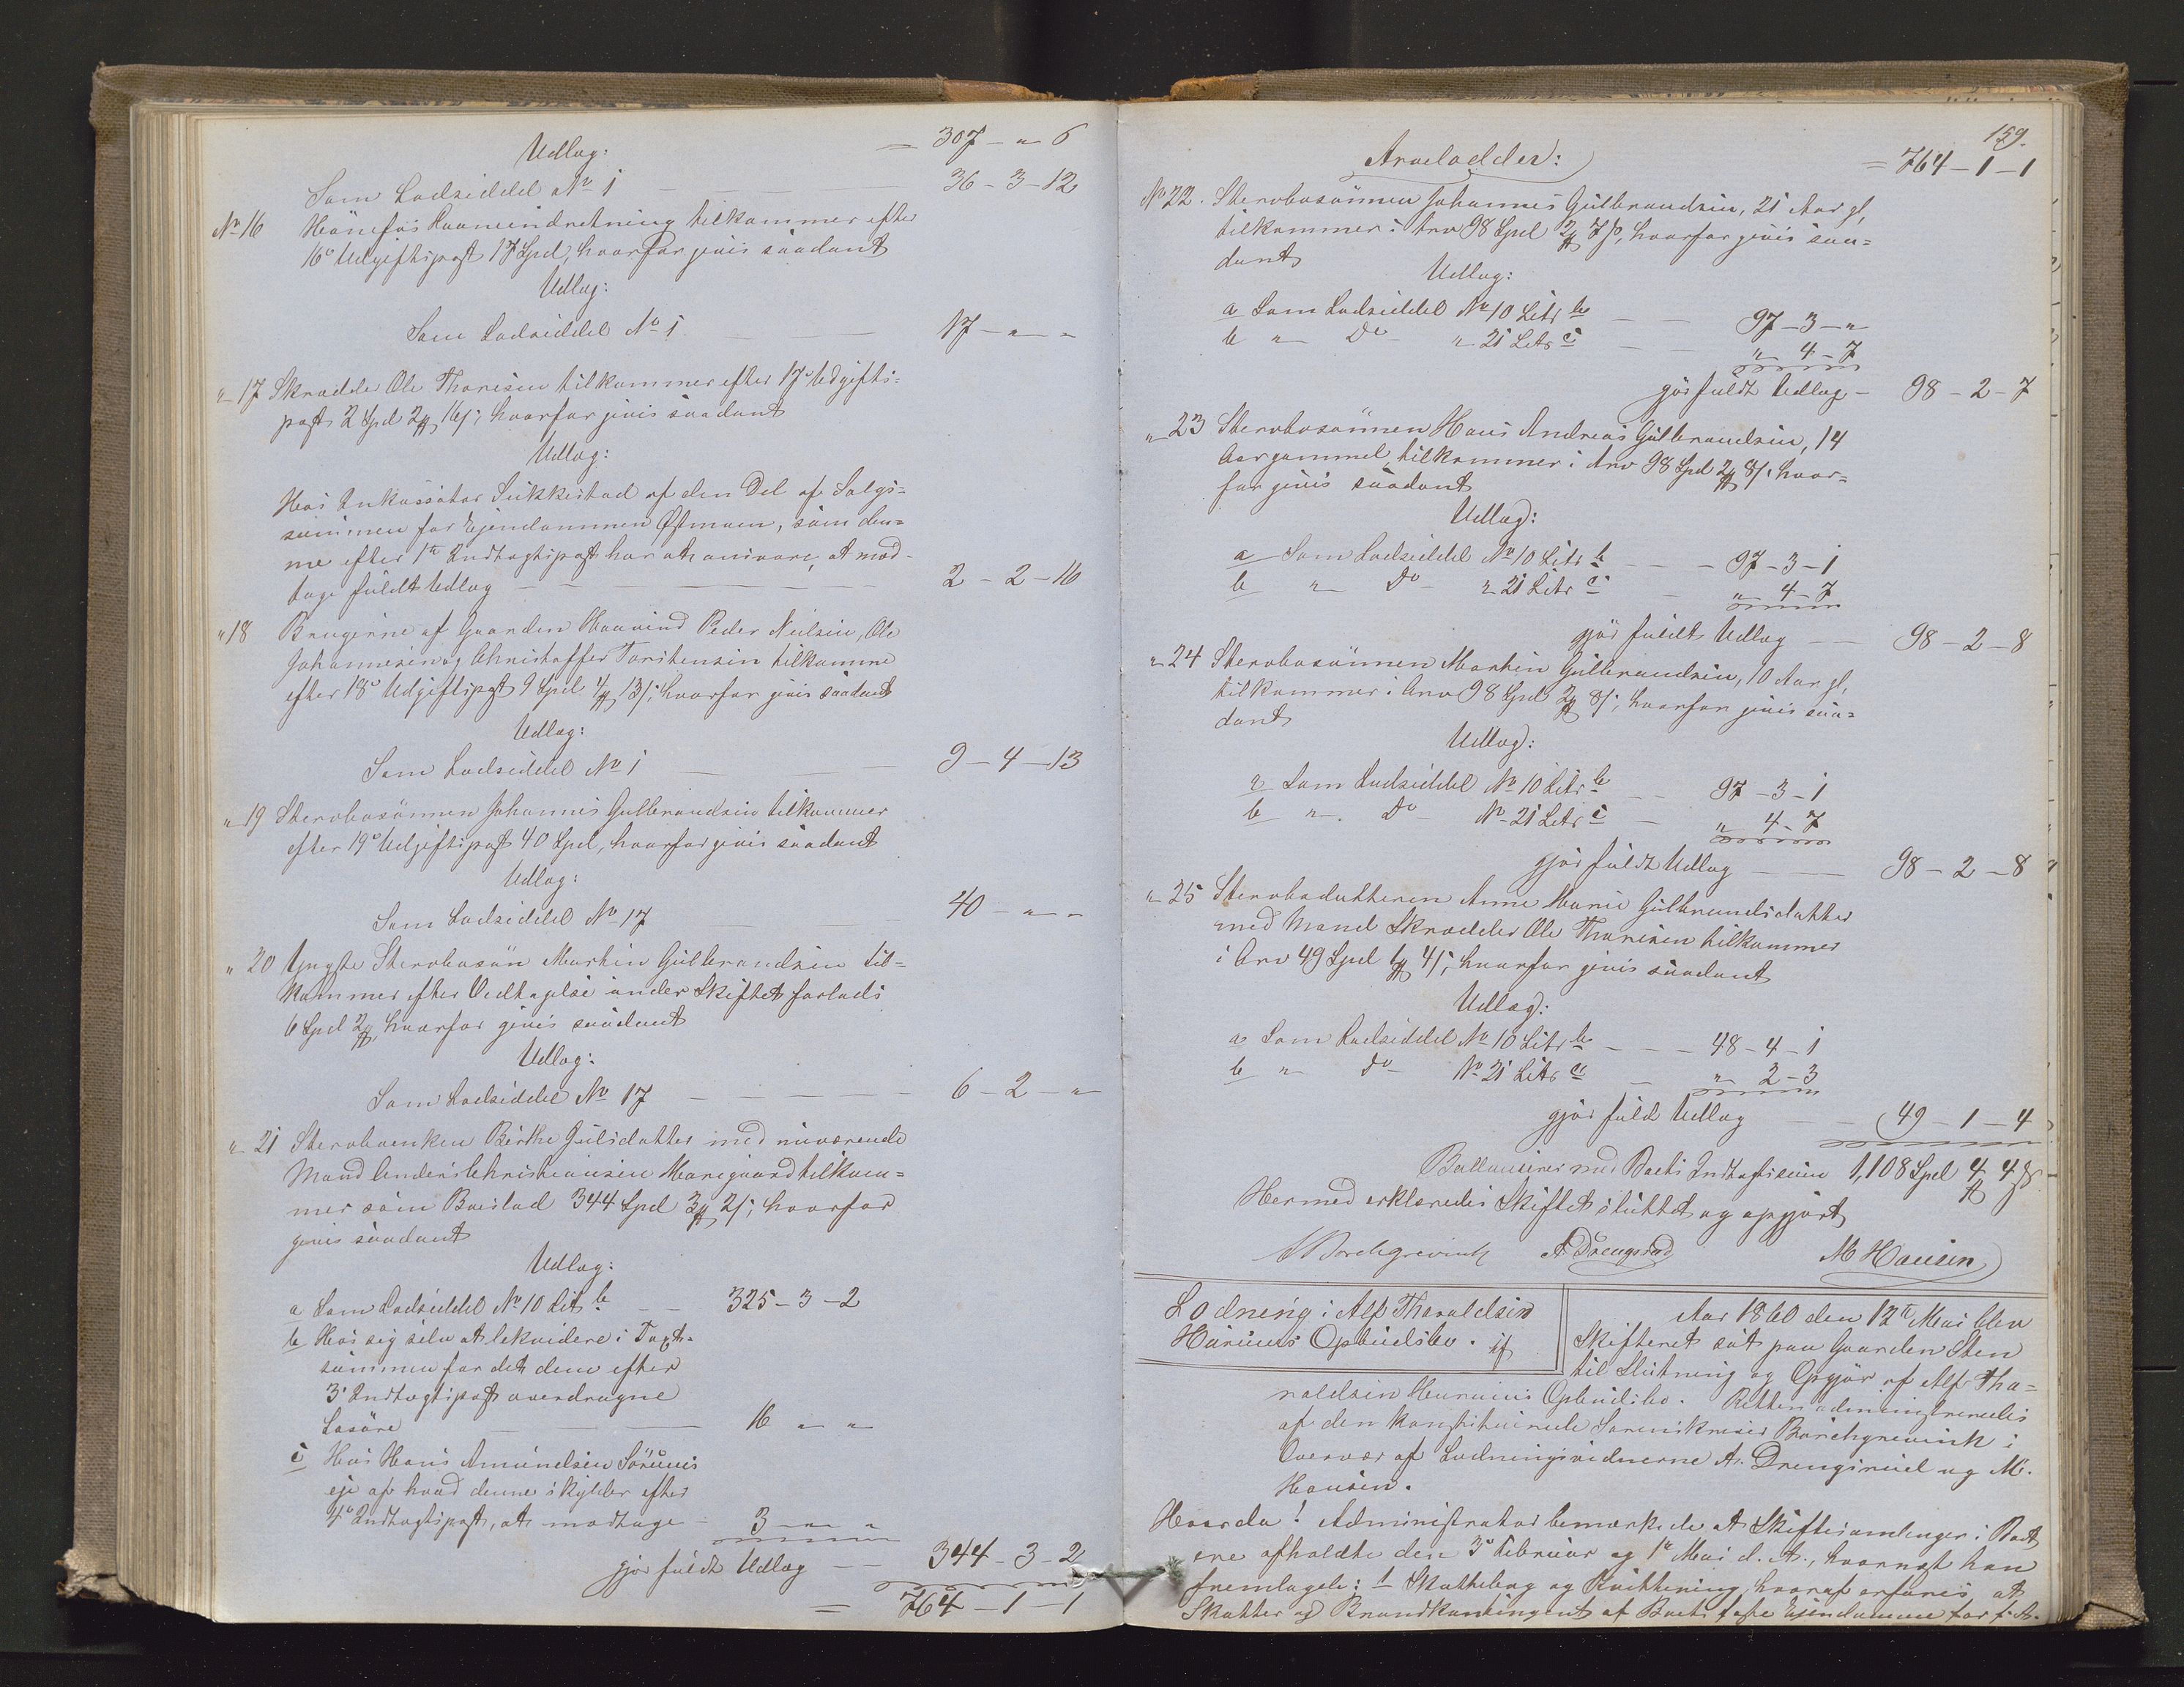 = 307 - " 6
Udlæg:
Som Lodseddel No 1 — 36 - 3 - 12
No 16 Hönefos Laaneindretning tilkommer efter
16de Udgiftspost 17 Spd, hvorfor gives saadant
Udlæg:
Som Lodseddel No 1 — 17 - " - "
" 17 Skrædder Ole Thoresen tilkommer efter 17de Udgifts-
post 2 Spd 2 ₰ 16 s; hvorfor gives saadant
Udlæg:
Hos Inkassator Sukkestad af den Del af Salgs-
summen for Ejendommen Østmoen, som den-
ne efter 1ste Indtægtspost har at ansvare, at mod-
tage fuldt Udlæg — 2 - 2 - 16
" 18 Brugerne af Gaarden Haavind Peder Neilsen, Ole
Johannesen og Christoffer Torstensen tilkomme
efter 18de Udgiftspost 9 Spd 4 ₰ 13 s; hvorfor gives saadant
Udlæg:
Som Lodseddel No 1 — 9 - 4 - 13
" 19 Stervbosønnen Johannes Gulbrandsen tilkommer
efter 19de Udgiftspost 40 Spd, hvorfor gives saadant
Udlæg:
Som Lodseddel No 17 — 40 - " - "
" 20 Yngste Stervbosøn Martin Gulbrandsen til-
kommer efter Vedtagelse under Skiftet forlods
6 Spd 2 ₰, hvorfor gives saadant
Udlæg:
Som Lodseddel No 17 — 6 - 2 - "
" 21 Stervboenken Birthe Julsdatter med nuværende
Mand Anders Christiansen Moregaard tilkom-
mer som Boeslod 344 Spd 3 ₰ 2 s; hvorfor
gives saadant
Udlæg:
a Som Lodseddel No 10 Litr b — 325 - 3 - 2
b Hos sig selv at lekvidere i Taxt-
summen for det dem efter
3die Indtægtspost overdragne
Løsøre — 16 " "
c Hos Hans Amundsen Sörums
eje af hvad denne skylder efter
4de Indtægtspost, at modtage - 3 - " "
gjør fuldt Udlæg — 344 - 3 - 2
= 764 - 1 - 1
159.
Arvelodder: = 764 - 1 - 1
No 22. Stervbosønnen Johannes Gulbrandsen, 21 Aar gl,
tilkommer i Arv 98 Spd 2 ₰ 7 s, hvorfor gives saa-
dant
Udlæg:
a Som Lodseddel No 10 Litr b — 97 - 3 - "
b " Do " 21 Litr c — " 4 - 7
gjør fuldt Udlæg - 98 - 2 - 7
" 23 Stervbosønnen Hans Andreas Gulbrandsen, 14
Aar gammel tilkommer i Arv 98 Spd 2 ₰ 8 s; hvor-
for gives saadant
Udlæg:
a Som Lodseddel No 10 Litr b — 97 - 3 - 1
b " Do " 21 Litr c - " 4 - 7
gjør fuldt Udlæg — 98 - 2 - 8
" 24 Stervbosønnen Martin Gulbrandsen, 10 Aar gl,
tilkommer i Arv 98 Spd 2 ₰ 8 s; hvorfor gives saa-
dant
Udlæg:
a Som Lodseddel No 10 Litr b — 97 - 3 - 1
b " Do No 21 Litr c - " 4 - 7
gjør fuldt Udlæg — 98 - 2 - 8
" 25 Stervbodatteren Anne Marie Gulbrandsdatter
med Mand Skrædder Ole Thoresen tilkommer
i Arv 49 Spd 1 ₰ 4 s; hvorfor gives saadant
Udlæg:
a Som Lodseddel No 10 Litr b — 48 - 4 - 1
b " Do No 21 Litr c - " 2 - 3
gjør fuldt Udlæg — 49 - 1 - 4
Ballancerer med Boets Indtægtssum 1,108 Spd 4 ₰ 4 s.
Hermed erklæredes Skiftet sluttet og opgjort
Borchgrevink A Drengsrud M Hansen
Lodning i Alf Tharaldsen
Harums Opbudsbo.
Aar 1860 den 12te Mai blev
Skifteret sat paa Gaarden Sten
til Slutning og Opgjør af Alf Tha-
raldsen Harums Opbudsbo. Retten administreredes
af den konstituerede Sorenskriver Borchgrevink i
Overvær af Lodningsvidnerne A. Drengsrud og M.
Hansen.
Hvorda! Administrator bemærkede at Skiftesamlinger i Boet
ere afholdte den 3die Februar og 1ste Mai d. A., hvornæst han
fremlagde: 1 Skattebog og Kvittering, hvoraf erfares at
Skatter og Brandkontingent af Boets faste Ejendomme for f. A.